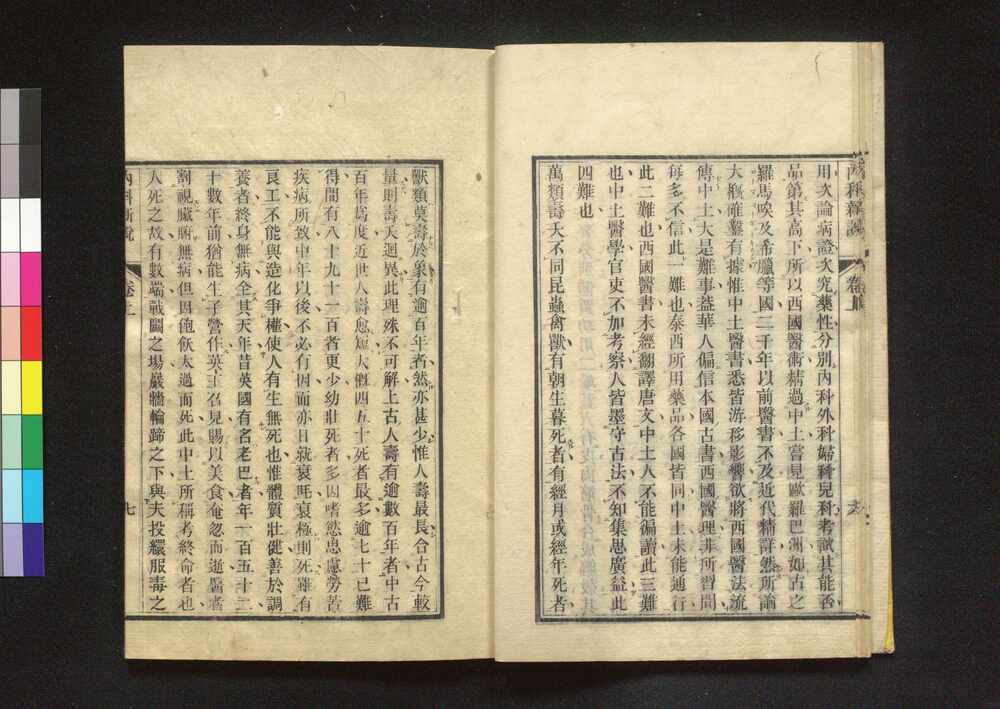 用次論病證次究藥性分別內科外科婦科兒科考試其能否
品第其高下所以西國醫術精過中土嘗見歐羅巴洲如古之
羅馬唉及希臘等國二千年以前醫書不及近代精詳然所論
大概確鑿有據惟中土醫書悉皆游移影響欲將西國醫法流
傳中土大是難事蓋華人偏信本國古書西國醫理非所習聞
每多不信此一難也泰西所用藥品各國皆同中土未能通行
此二難也西國醫書未經翻譯唐文中土人不能徧讀此三難
也中土醫學官吏不加考察人皆墨守古法不知集思廣益此
四難也
萬類壽夭不同昆蟲禽獸有朝生暮死者有經月或經年死者
獸類莫壽於象有逾百年者然亦甚少惟人壽最長合古今較
量則壽夭迥異此理殊不可解上古人壽有逾數百年者中古
百年爲度近世人壽愈短大概四五十死者最多逾七十已難
得間有八十九十一百者更少幼壯死者多因嗜慾思慮勞苦
疾病所致中年以後不必有因而亦日就衰旺衰極則死雖有
良工不能與造化爭權使人有生無死也惟體質壯健善於調
養者終身無病全其天年昔英國有名老巴者年一百五十二
十數年前猶能生子營作英主召見賜以美食奄忽而逝醫者
剖視臟腑無病但因飽飫太過而死此中土所稱考終命者也
人死之故有數端戰鬬之場巖牆輪蹄之下與夫投繯服毒之
內科新說
卷上
七